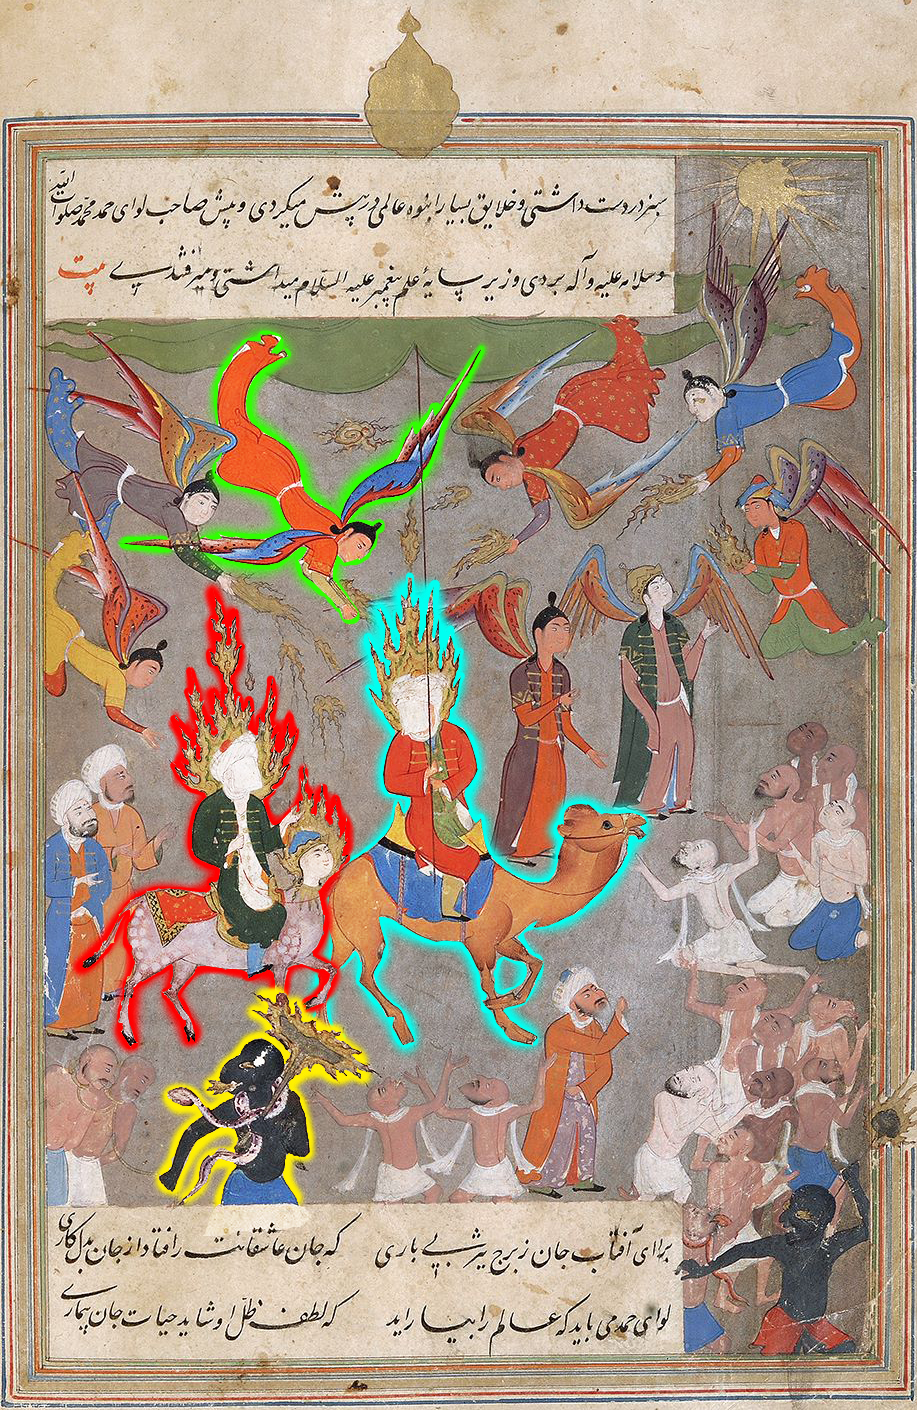 سبز در دست داشتی و خلایق بسیار انبوه عالمی در پیش میکردی و پیش صاحب لوای حمد محمد صلوات الله
وسلامه علیه وآله بردی و زیر پایهٔ علم پیغمبر علیه السلام میداشتی ومیرفتند پے بیت
برای آفتاب جان ز برج یثربی باری که جان عاشقانت را
لوای حمد می باید که عالم را بیاراید که لطف ظلّ او شاید حیات جان